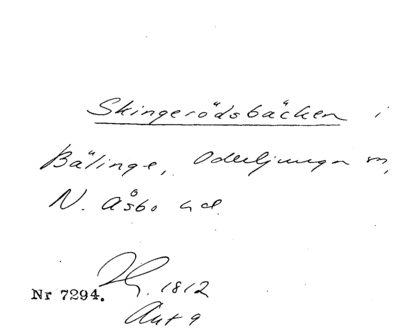 Skingerödsbäcken i
Bälinge, Oderljunga sn,
N. Åsbo hd
Nr 7294. 1812
Akt 9